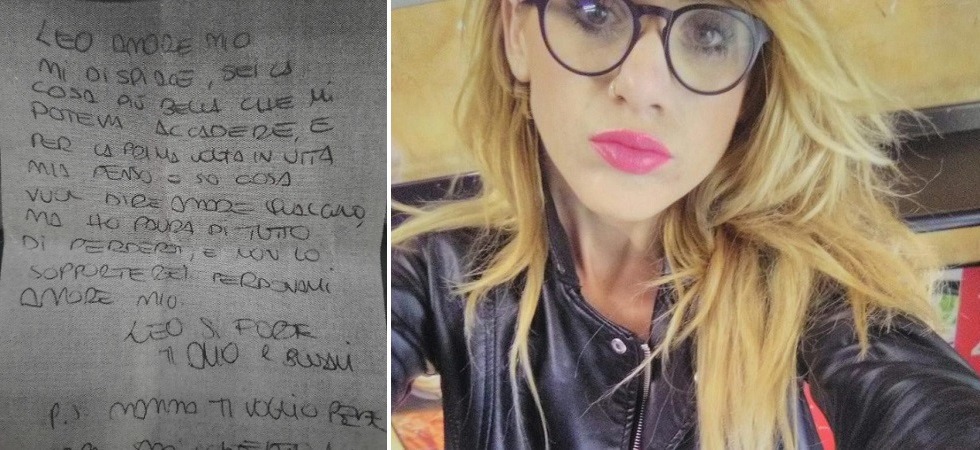 LEO AMORE MIO
MI DISPIACE, SEI LA
COSA PIÙ BELLA CHE MI
POTEVA ACCADERE, E
PER LA PRIMA VOLTA IN VITA
MIA PENSO E SO COSA
VUOL DIRE AMARE QUALCUNO,
MA HO PAURA DI TUTTO
DI PERDERTI, E NON LO
SOPPORTEREI PERDONAMI
AMORE MIO.
LEO SI FORTE
TI AMO E SCUSAMI
P.S. MAMMA TI VOGLIO BENE